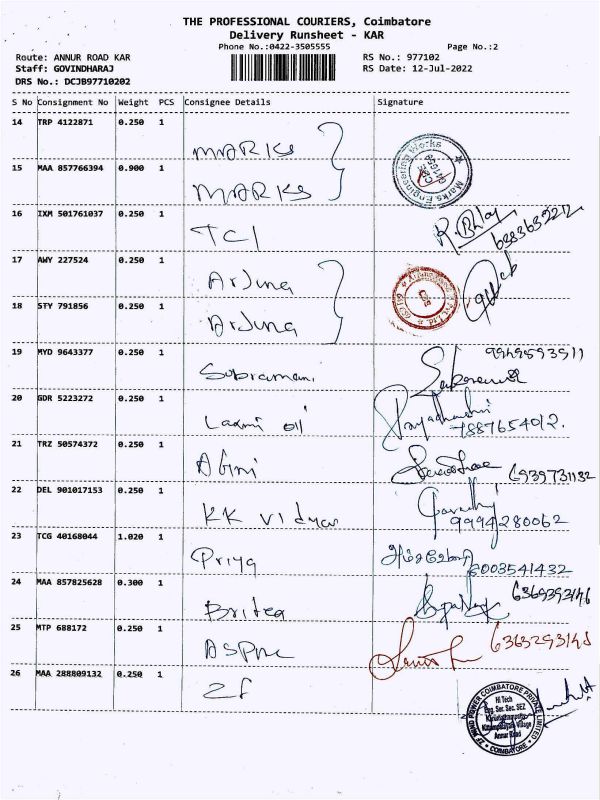 THE PROFESSIONAL COURIERS, Coimbatore
Delivery Runsheet - KAR
Phone No.:0422-3505555
Page No.:2
Route: ANNUR ROAD KAR
RS No.: 977102
Staff: GOVINDHARAJ
RS Date: 12-Jul-2022
DRS No.: DCJB97710202
S No Consignment No Weight PCS Consignee Details Signature
14 TRP 4122871 0.250 1 MARKS
15 MAA 857766394 0.900 1 MARKS
Marks Engineering Works
16 IXM 501761037 0.250 1 TCI
17 AWY 227524 0.250 1 Arjuna
18 STY 791856 0.250 1 Arjuna
19 MYD 9643377 0.250 1 Subramani
20 GDR 5223272 0.250 1 Laxmi oil
7887654012.
21 TRZ 50574372 0.250 1
22 DEL 901017153 0.250 1 KK Vidyas
9994280062
23 TCG 40168044 1.020 1 Priya
6003541432
24 MAA 857825628 0.300 1
6369393146
25 MTP 688172 0.250 1
26 MAA 288809132 0.250 1 ZF
ZF WIND POWER COIMBATORE PRIVATE LIMITED
Hi Tech
Eng. Ser. Sec. SEZ
Annur Road
COIMBATORE